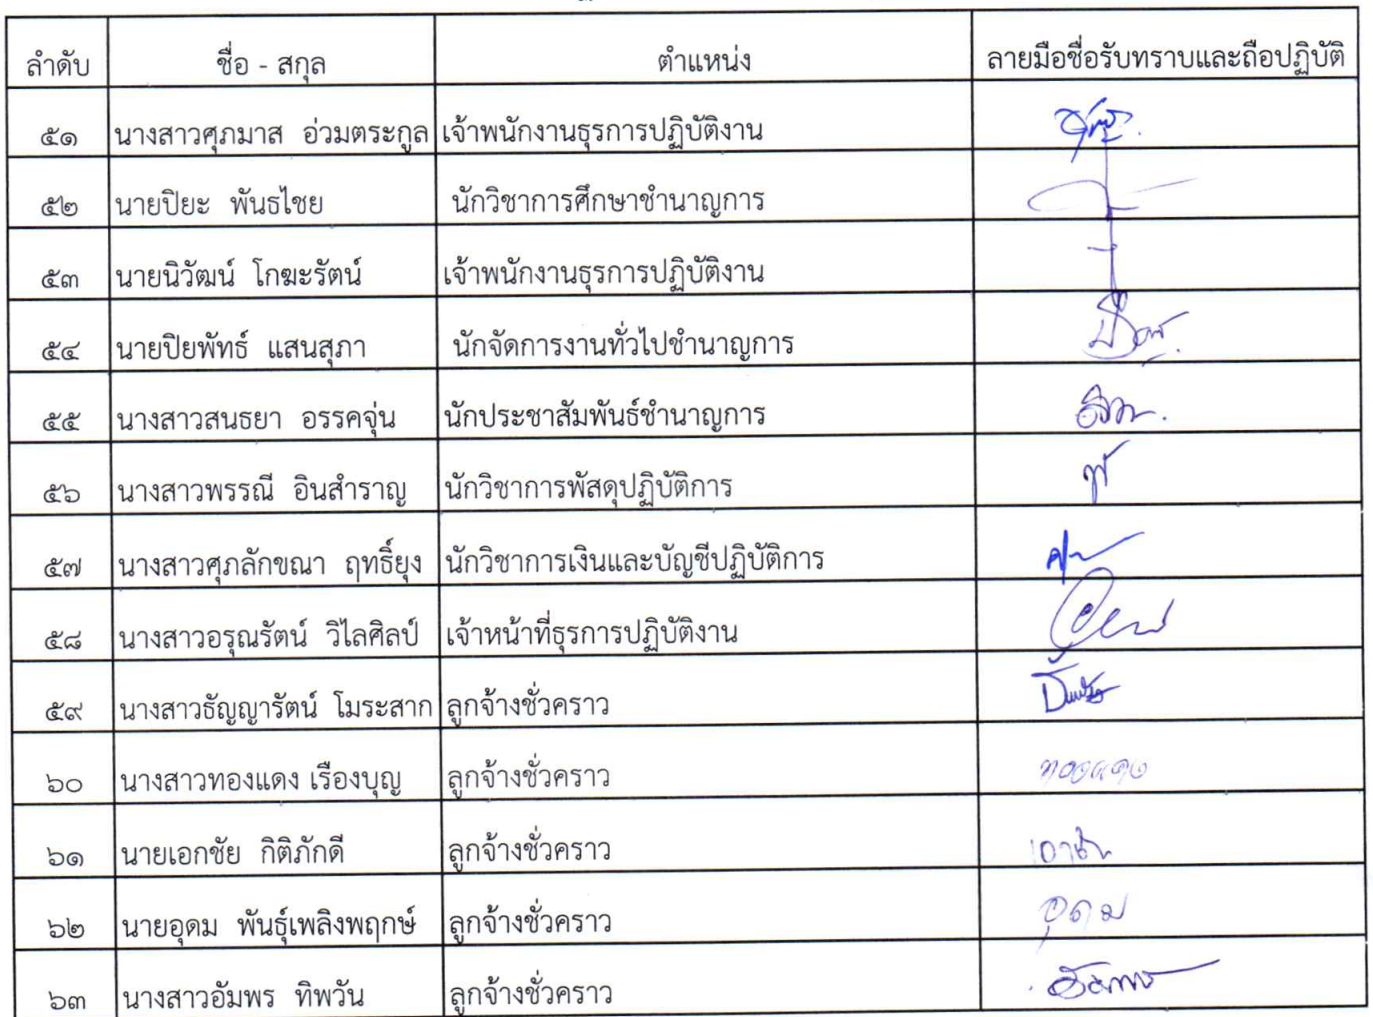 ลำดับ ชื่อ - สกุล ตำแหน่ง ลายมือชื่อรับทราบและถือปฏิบัติ
๕๑ นางสาวศุภมาส อ่วมตระกูล เจ้าพนักงานธุรการปฏิบัติงาน
๕๒ นายปิยะ พันธไชย นักวิชาการศึกษาชำนาญการ
๕๓ นายนิวัฒน์ โกฆะรัตน์ เจ้าพนักงานธุรการปฏิบัติงาน
๕๔ นายปิยพัทธ์ แสนสุภา นักจัดการงานทั่วไปชำนาญการ
๕๕ นางสาวสนธยา อรรคจุ่น นักประชาสัมพันธ์ชำนาญการ
๕๖ นางสาวพรรณี อินสำราญ นักวิชาการพัสดุปฏิบัติการ
๕๗ นางสาวศุภลักขณา ฤทธิ์ยุง นักวิชาการเงินและบัญชีปฏิบัติการ
๕๘ นางสาวอรุณรัตน์ วิไลศิลป์ เจ้าหน้าที่ธุรการปฏิบัติงาน
๕๙ นางสาวธัญญารัตน์ โมระสาก ลูกจ้างชั่วคราว
๖๐ นางสาวทองแดง เรืองบุญ ลูกจ้างชั่วคราว ทองแดง
๖๑ นายเอกชัย กิติภักดี ลูกจ้างชั่วคราว
๖๒ นายอุดม พันธุ์เพลิงพฤกษ์ ลูกจ้างชั่วคราว อุดม
๖๓ นางสาวอัมพร ทิพวัน ลูกจ้างชั่วคราว